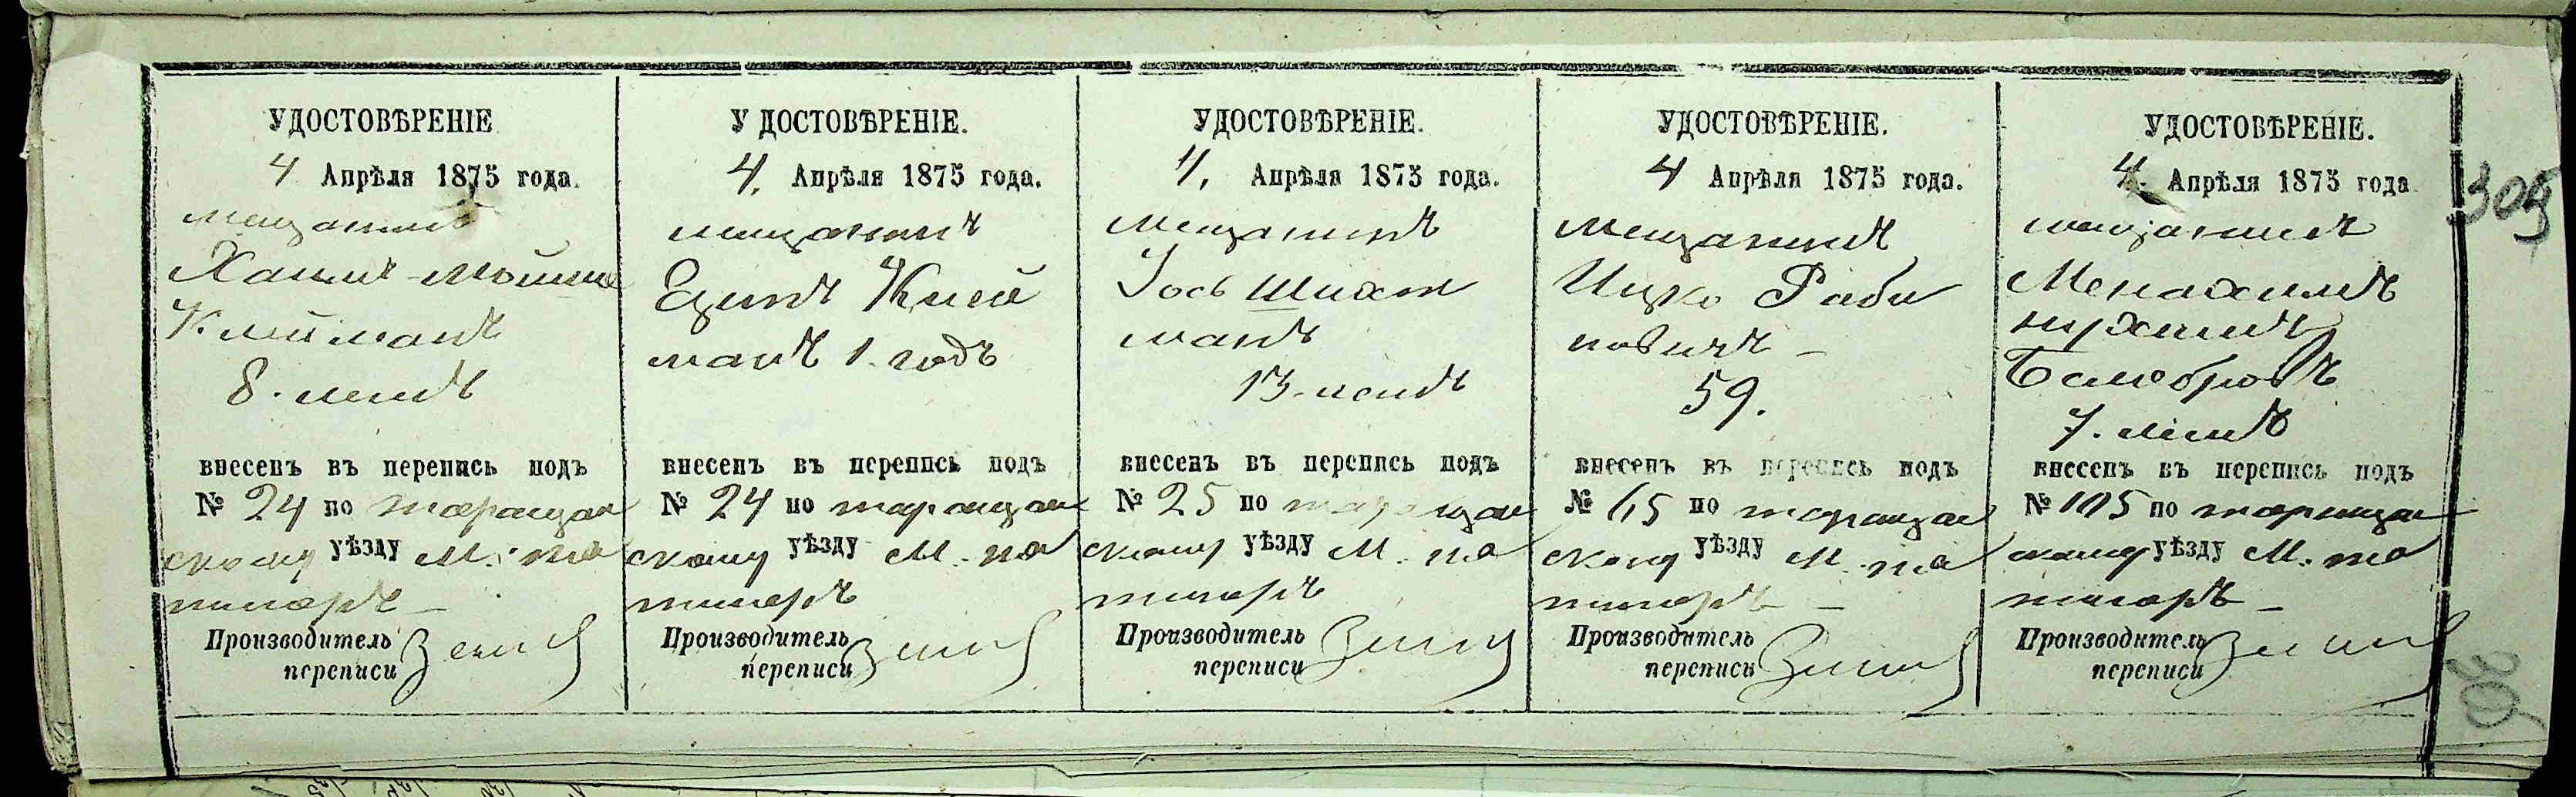 УДОСТОВѢРЕНІЕ
4 Апрѣля 1875 года.
мещанинъ
Хаимъ-Мошко
Клейманъ
8. летъ
внесенъ въ перепись подъ
№ 24 по таращан
скому уѣзду М.
Производитель
переписи
У ДОСТОВѢРЕНІЕ.
4. Апрѣля 1875 года.
мещанинъ
Клей
манъ 1. годъ
внесенъ въ перепись подъ
№ 24 по таращан
скому уѣзду М.
Производитель
переписи
УДОСТОВѢРЕНІЕ.
4. Апрѣля 1875 года.
мещанинъ
Іось Шихт
манъ
13. летъ
внесенъ въ перепись подъ
№ 25 по таращан
скому уѣзду М.
Производитель
переписи
УДОСТОВѢРЕНІЕ.
4 Апрѣля 1875 года.
мещанинъ
Ицко Раби
новичъ –
59.
внесенъ въ перепись подъ
№ по таращан
скому уѣзду М.
Производитель
переписи
УДОСТОВѢРЕНІЕ.
4. Апрѣля 1875 года
мещанинъ
Менахимъ
нухимъ
Белобровъ
7. летъ
внесенъ въ перепись подъ
№ 105 по таращан
скому уѣзду М.
Производитель
переписи